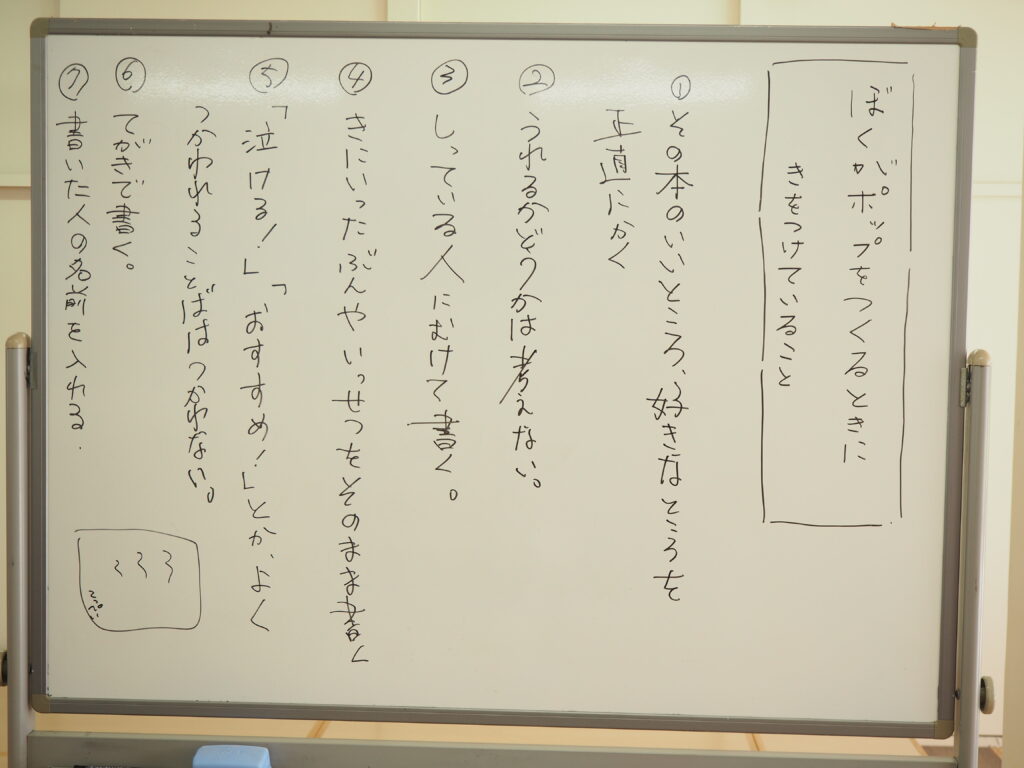 ぼくがポップをつくるときに
きをつけていること
① その本のいいところ、好きなところを
正直にかく
② うれるかどうかは考えない。
③ しっている人にむけて書く。
④ きにいったぶんやいっせつをそのまま書く
⑤ 「泣ける!」「おすすめ!」とか、よく
つかわれることばはつかわない。
⑥ てがきで書く。
⑦ 書いた人の名前を入れる.